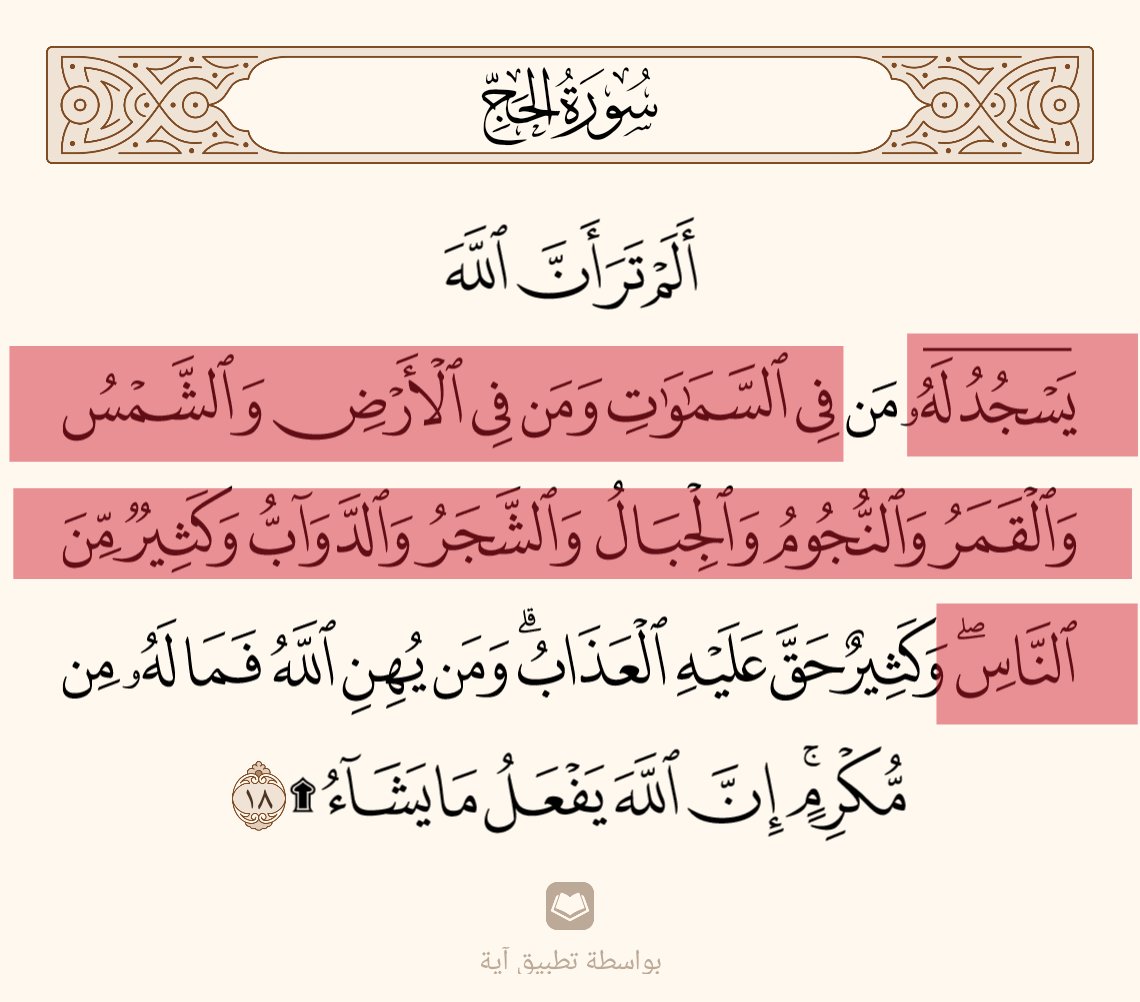 سُورَةُ الحَجِّ
أَلَمْ تَرَ أَنَّ ٱللَّهَ
يَسْجُدُ لَهُۥ مَن فِى ٱلسَّمَـٰوَٰتِ وَمَن فِى ٱلْأَرْضِ وَٱلشَّمْسُ
وَٱلْقَمَرُ وَٱلنُّجُومُ وَٱلْجِبَالُ وَٱلشَّجَرُ وَٱلدَّوَآبُّ وَكَثِيرٌ مِّنَ
ٱلنَّاسِ ۖ وَكَثِيرٌ حَقَّ عَلَيْهِ ٱلْعَذَابُ ۗ وَمَن يُهِنِ ٱللَّهُ فَمَا لَهُۥ مِن
مُّكْرِمٍ ۚ إِنَّ ٱللَّهَ يَفْعَلُ مَا يَشَآءُ ۩ ١٨
بواسطة تطبيق آية